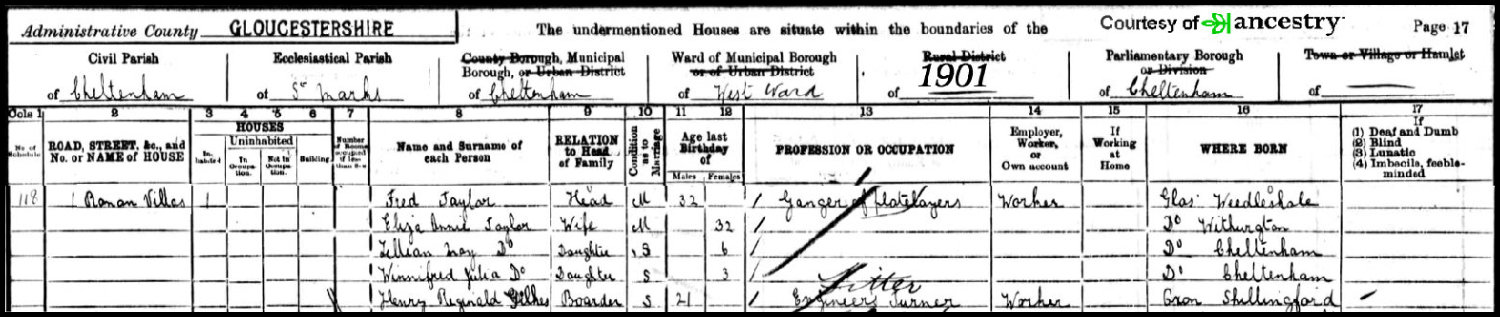 Administrative County GLOUCESTERSHIRE The undermentioned Houses are situate within the boundaries of the Courtesy of ancestry Page 17
Civil Parish Ecclesiastical Parish County Borough, Municipal Borough, or Urban District Ward of Municipal Borough or of Urban District Rural District Parliamentary Borough or Division Town or Village or Hamlet
of Cheltenham of St Marks of Cheltenham of West Ward of 1901 of Cheltenham of
Cols 1 2 3 4 5 6 7 8 9 10 11 12 13 14 15 16 17
No. of Schedule ROAD, STREET, &c., and No. or NAME of HOUSE HOUSES In-habited Uninhabited In Occupa-tion. Not in Occupa-tion. Building Number of Rooms occupied if less than five Name and Surname of each Person RELATION to Head of Family Condition as to Marriage Age last Birthday of Males Females PROFESSION OR OCCUPATION Employer, Worker, or Own account If Working at Home WHERE BORN If (1) Deaf and Dumb (2) Blind (3) Lunatic (4) Imbecile, feeble-minded
118 1 Roman Villas 1 Fred Taylor Head M 32 Ganger of platelayers Worker Glos
Eliza Annie Taylor Wife M 32 Do Withington
Lillian May Do Daughter S 6 Do Cheltenham
Winnifred Julia Do Daughter S 3 Do Cheltenham
Fitter
Henry Reginald Gilkes Boarder S 21 Engineers Turner Worker Oxon Shillingford